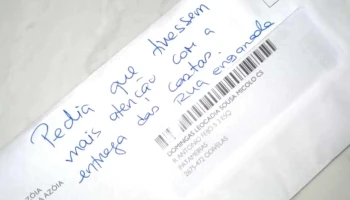 Pedia que tivessem
mais atenção com a
entrega das cartas.
Rua enganada
DOMINGAS LEOCADIA SOUSA NICOLO CS
R ANTONIO FEIO 3 3 ESQ
PATAMEIRAS
2675-472 ODIVELAS
AZÓIA
A AZÓIA